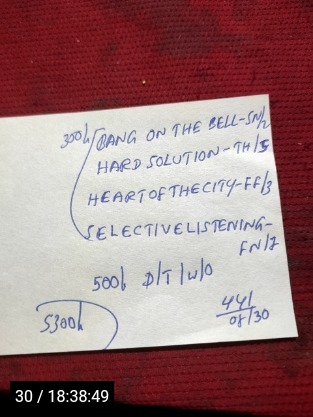 300h BANG ON THE BELL-SN/2
HARD SOLUTION-TH/5
HEART OF THE CITY-FF/3
SELECTIVE LISTENING-
FN/7
500h D/T/W/O
5300h
441
08/30
30 / 18:38:49